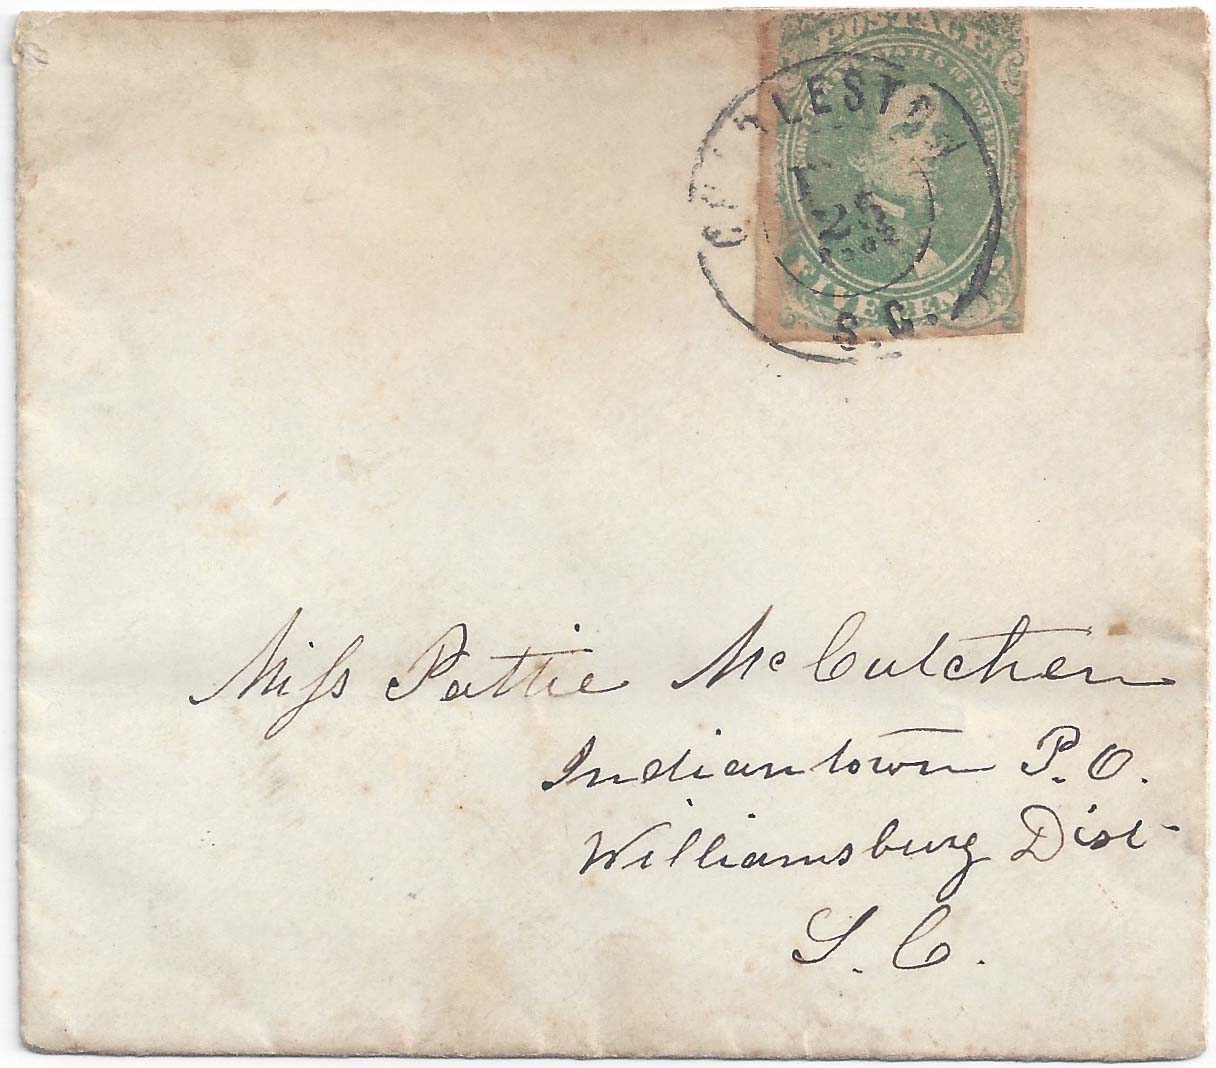 POSTAGE
CONFEDERATE STATES OF AMERICA
CHARLESTON
25
FIVE CENTS
S.C.
Miss Pattie McCutchen
Indiantown P.O.
Williamsburg Dist
S.C.